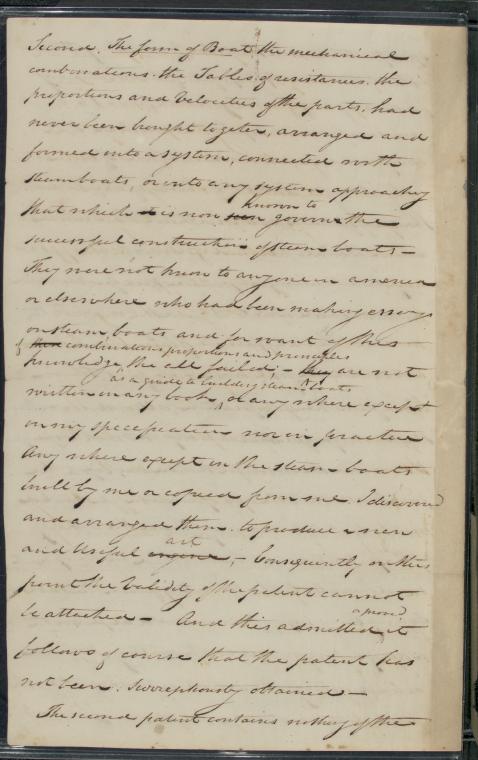 Second. The form of Boat the mechanical
combinations. the Tables of resistances. the
proportions and velocities of the parts. had
never been bought togeter, arranged and
formed into a system, connected with
steamboats, or into any system approaching
known to
that which is now govern the
successful construction of steam boats –
They were not know to any one in america
or elsewhere who had been making essays
on steam boats and for want of this
of combinations proportions and principles
knowledge the all failed; – they are not
as a guide to building steam boats
written in any book, or any where except
in my specification nor in practice
any where except in the steam boats
built by me or copied from me I discovered
and arranged them. to produce a new
art
and Useful engine, – Consequently on this
point the Validity of the patent cannot
a proved
be attached – And this admitted it
follows of course that the patent has
not been. Surreptiously obtained –
The second patent contains nothing of the